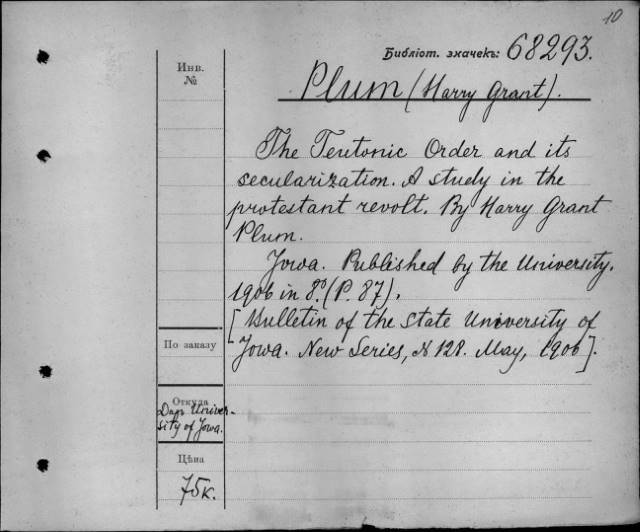 10
Библіот. значекъ: 68293.
Инв.
№
Plum (Harry Grant).
The Teutonic Order and its
secularization. A study in the
protestant revolt. By Harry Grant
Plum.
Jowa. Published by the University.
1906 in 8º. (P. 87).
[Bulletin of the State University of
Jowa. New Series, № 128. May, 1906].
По заказу
Откуда
Даръ Univer-
sity of Jowa.
Цѣна
75к.